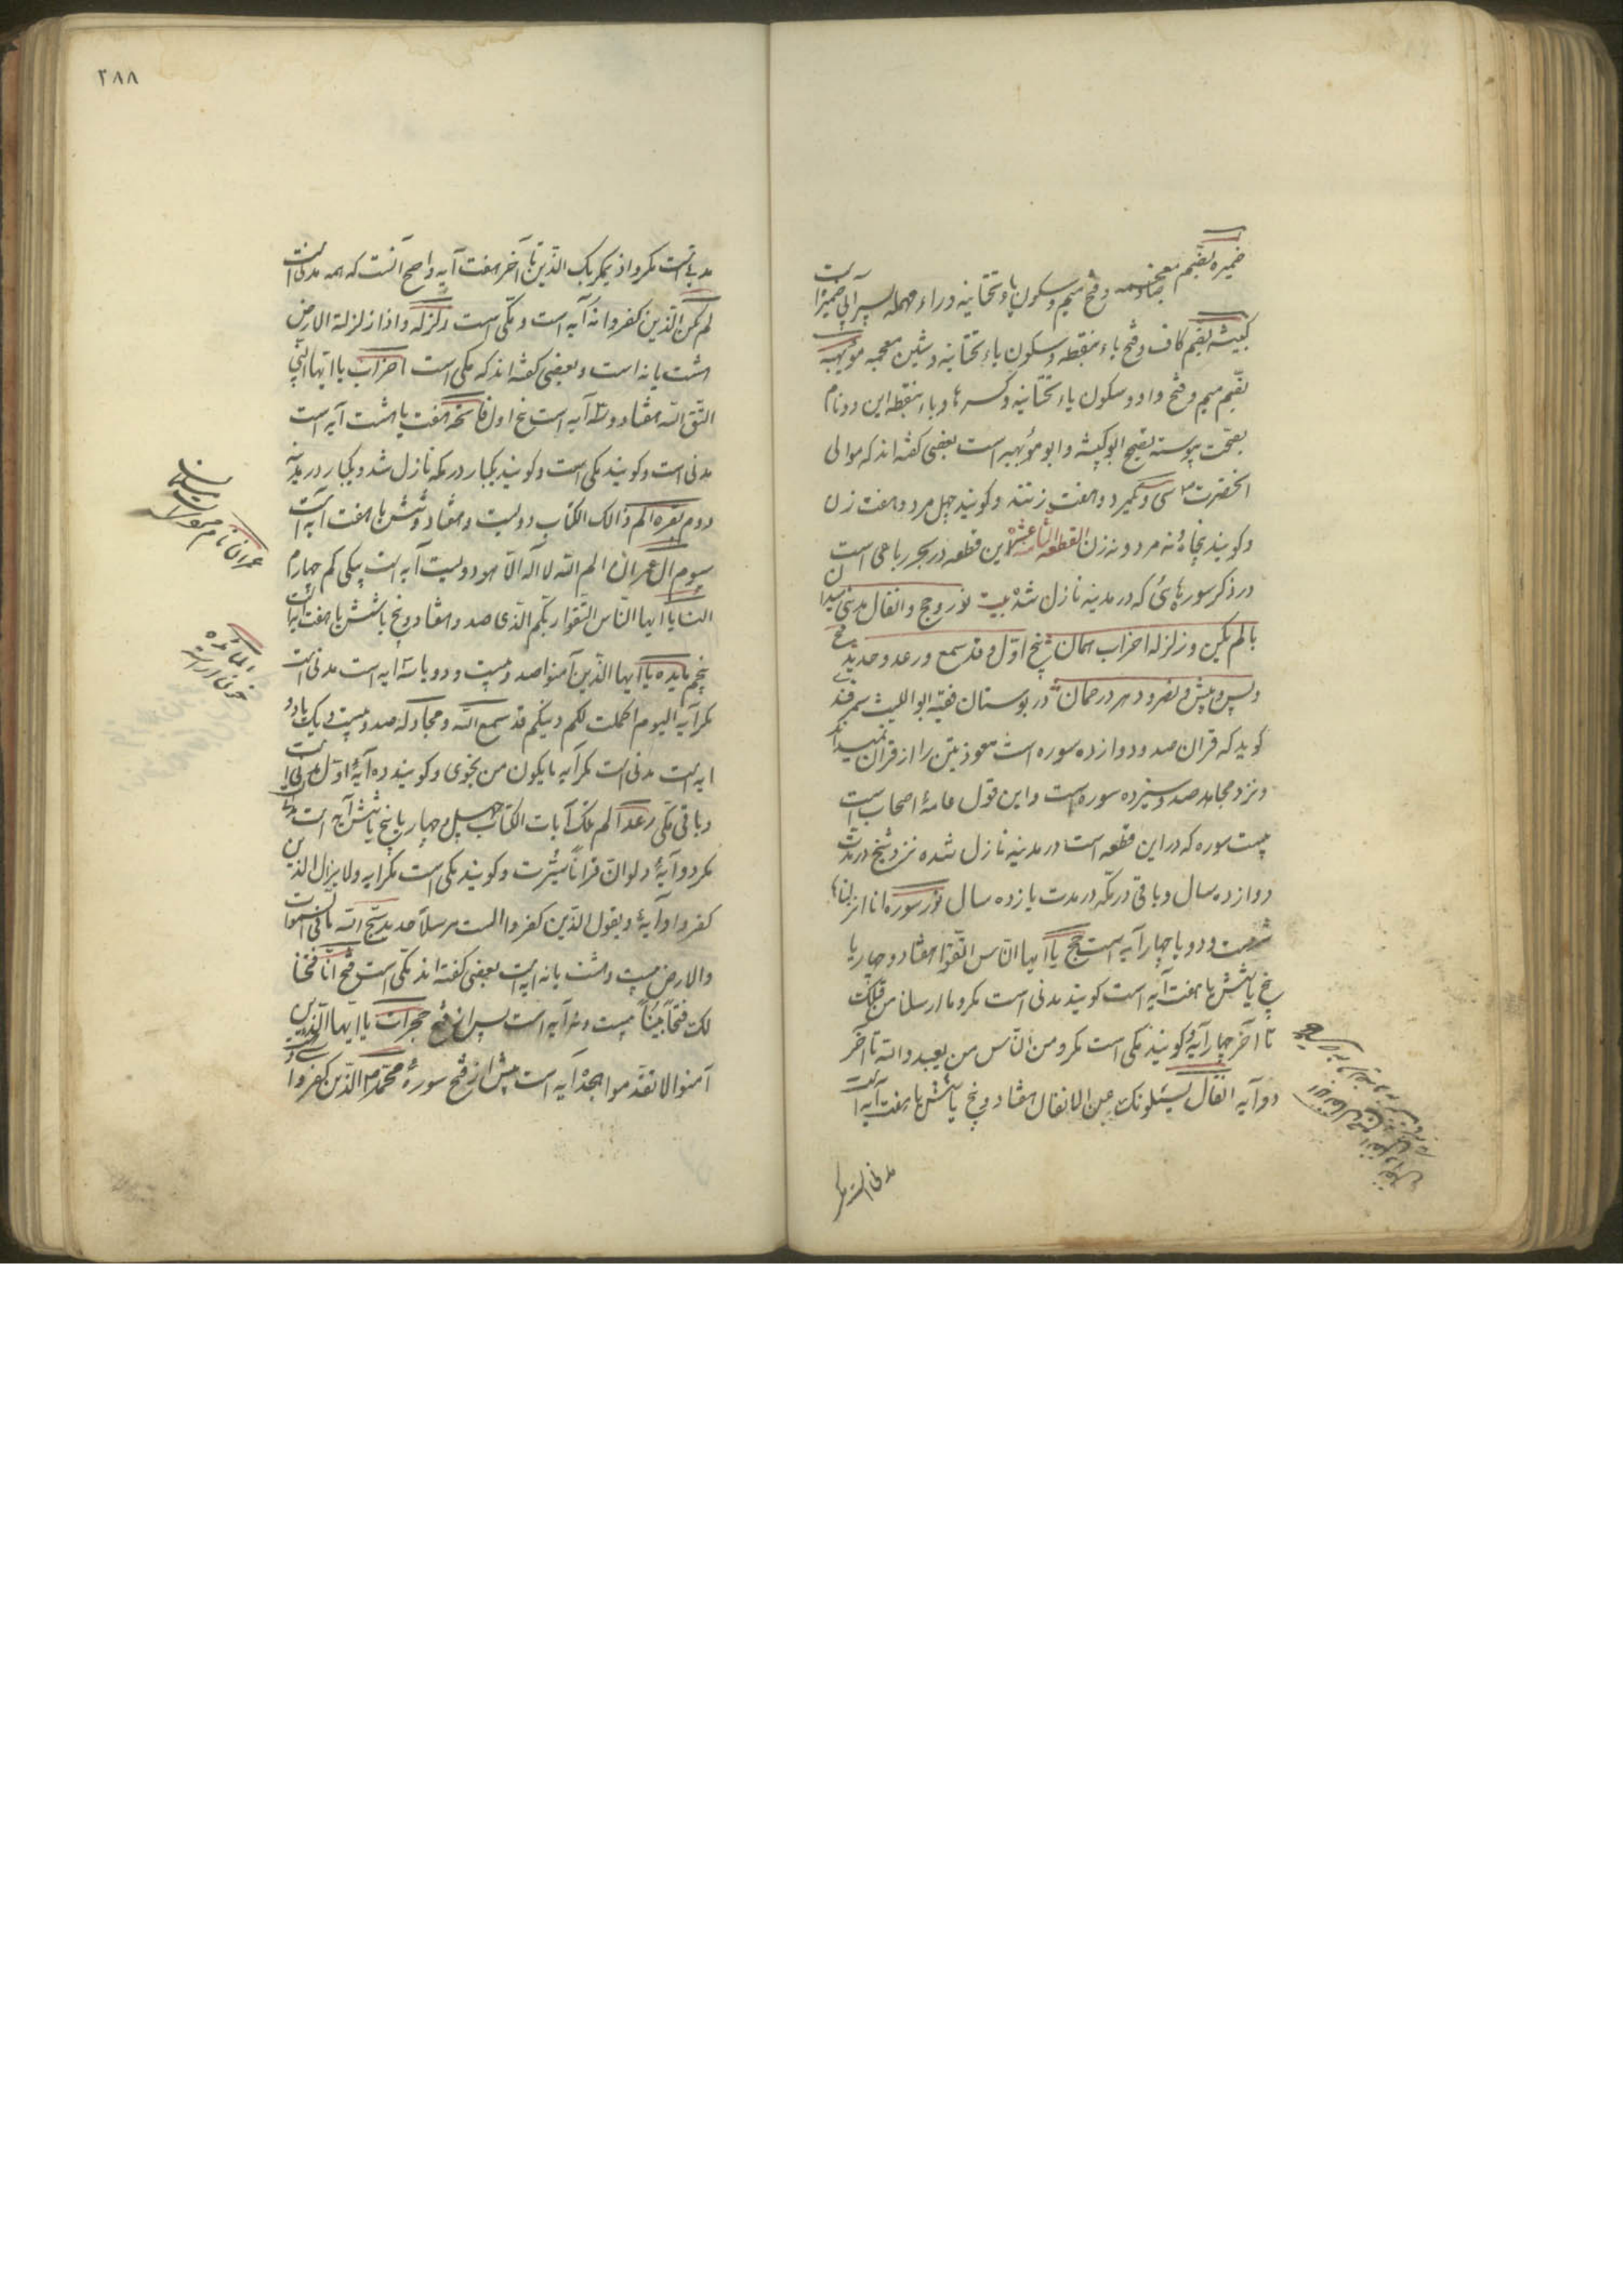 ضمیره بضم معجمه
و فتح میم و سکون یاء تحتانیه وراء مهمله پسر ابی ضمیر است
کبیشه بضم کاف و فتح باء بنقطه و سکون یاء تحتانیه و شین معجمه مویهبه
بضم میم و فتح واو و سکون یاء تحتانیه و کسر ها و باء بنقطه این دو نام
بصحت پیوسته بقیح ابو کبیشه و ابو مویهبه است بعضی گفته‌اند که موالی
آنحضرت م سی و یکمرد و هفت زنند و گویند چهل مرد و هفت زن
و گویند پنجاه و نه مرد و نه زن القطعه الثامنه عشر این قطعه در بحر رباعی است
در ذکر سوره‌هائی که در مدینه نازل شده بیت نور و حج و انفال مدنی میدان
با لم یکن و زلزله احزاب همان پنج اول و قد سمع و رعد و حدید فتح
و پس و پیش و نصر و دهر و رحمان در بوستان فقیه ابو اللیث سمرقندی
گوید که قران صد و دوازده سوره است معوذتین را از قران نمیداند
و نزد مجاهد صد و سیزده سوره است و این قول عامهٔ اصحاب است
بیست سوره که در این قطعه است در مدینه نازل شده نزد شیخ در مدت
دوازده سال و باقی در مکه در مدت یازده سال نور سورة انزلناها
شصت و دو یا چهار آیه است حج یا ایها الناس اتقوا هفتاد و چهار یا
پنج یا شش یا هفت آیه است گویند مدنی است مکر وما ارسلنا من قبلک
تا آخر چهار آیه و گویند مکی است مکر ومن الناس من یعبد والله تا آخر
دو آیه انفال یسئلونک عن الانفال هفتاد و پنج یا شش یا هفت آیه است
مدنی است مکر
۲۸۸
مدنی است مکر واذ یمکر بک الذین تا آخر هفت آیه واصح آنست که همه مدنی است
لم یکن الذین کفروا نه آیه است و مکی است زلزله واذا زلزلة الارض
هشت یا نه است و بعضی گفته‌اند که مکی است احزاب یا ایها النبی
اتق الله هفتاد و سه آیه است پنج اول فاتحه هفت یا هشت آیه است
مدنی است و گویند مکی است و گویند یکبار در مکه نازل شد و یکبار در مدینه
دوم بقره الم ذالک الکتاب دویست و هشتاد و شش یا هفت آیه است
سوم ال عمران الم الله لا اله الا هو دویست آیه است یکی کم چهارم
النسا یا ایها الناس اتقوا ربکم الذی صد و هفتاد و پنج یا شش یا هفت آیه است
پنجم مایده یا ایها الذین آمنوا صد و بیست و دو یا سه آیه است مدنی است
مکر آیه الیوم اکملت لکم دینکم قد سمع الله و مجادله صد و بیست و یک یا دو
آیه است مدنی است مکر آیه ما یکون من نجوی و گویند ده آیهٔ اول مدنی است
و باقی مکی رعد الم تلک آیات الکتاب چهل و چهار یا پنج یا شش آیه است مدنی است
مکر دو آیهٔ ولو ان قرانا سیرت و گویند مکی است مکر آیه ولا یزال الذین
کفروا و آیهٔ ویقول الذین کفروا الست مرسلا حدید سبح لله ما فی السموات
والارض بیست و هشت یا نه آیه است بعضی گفته‌اند مکی است فتح انا فتحنا
لک فتحا مبینا بیست و نه آیه است پس از فتح حجرات یا ایها الذین
آمنوا لا تقدموا هجده آیه است پیش از فتح سورهٔ محمد م الذین کفروا